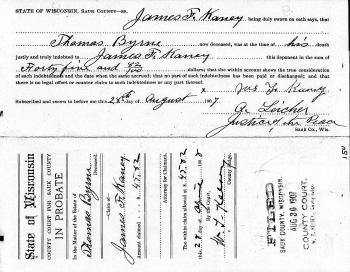 STATE OF WISCONSIN, SAUK COUNTY—SS.
James F. Kaney, being duly sworn on oath says, that
Thomas Byrne now deceased, was at the time of his death
justly and truly indebted to James F. Kaney this deponent in the sum of
Forty five and dollars, that the within account shows the true consideration
of such indebtedness and the date when the same accrued; that no part of such indebtedness has been paid or discharged; and that
there is no legal offset or counter claim to such indebtedness or any part thereof.
Jas F. Kaney
Subscribed and sworn to before me this 28th day of August 1907
Justice of the Peace
Sauk Co., Wis.
State of Wisconsin
COUNTY COURT FOR SAUK COUNTY
IN PROBATE
In the Matter of the Estate of
Thomas Byrne
Deceased.
—Claim of—
James F. Kaney
Amount claimed, $45.82
Attorney for Claimant.
The within claim allowed at $45.82
this 28 day of 190
By the Court,
County Judge.
FILED
SAUK COUNTY, WISCONSIN,
AUG 30 1907
COUNTY COURT.